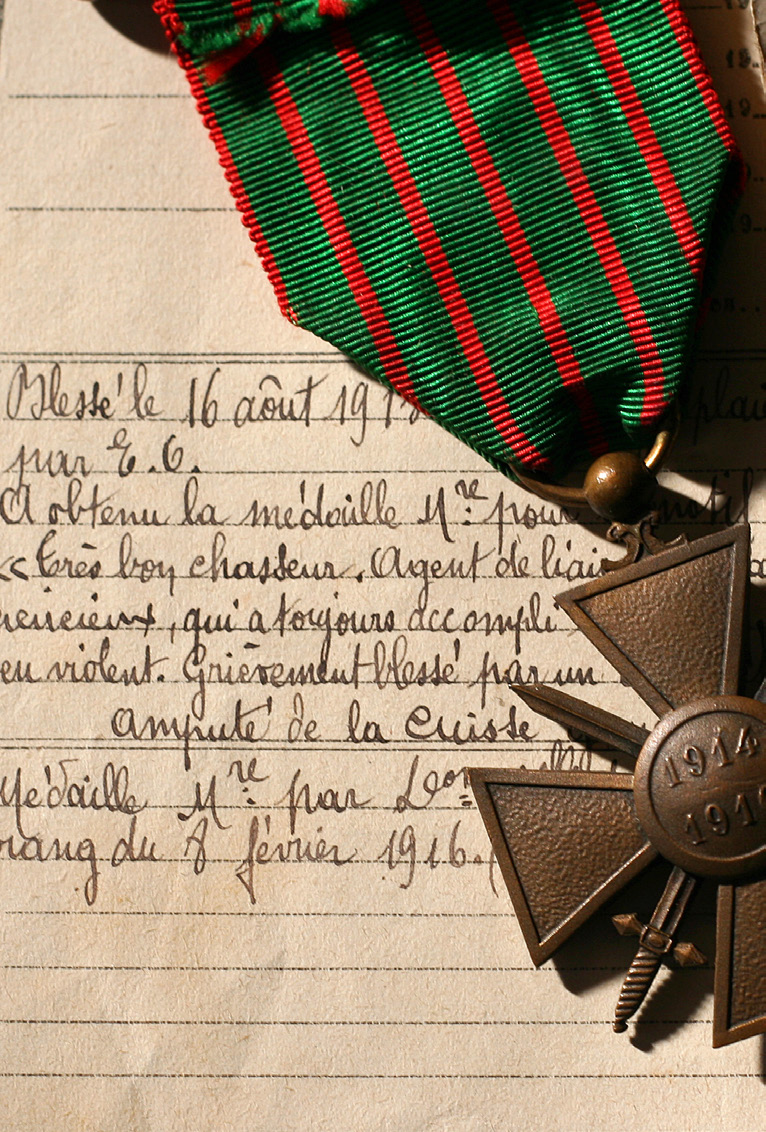 19..
19..
19..
Blessé le 16 août 191
par E.O.
A obtenu la médaille Mre pour motif
« Très bon chasseur. Agent de liai
qui a toujours accompli
eu violent. Grièvement blessé par un
amputé de la cuisse
Médaille Mre par Don
rang du 8 février 1916.
1914
191